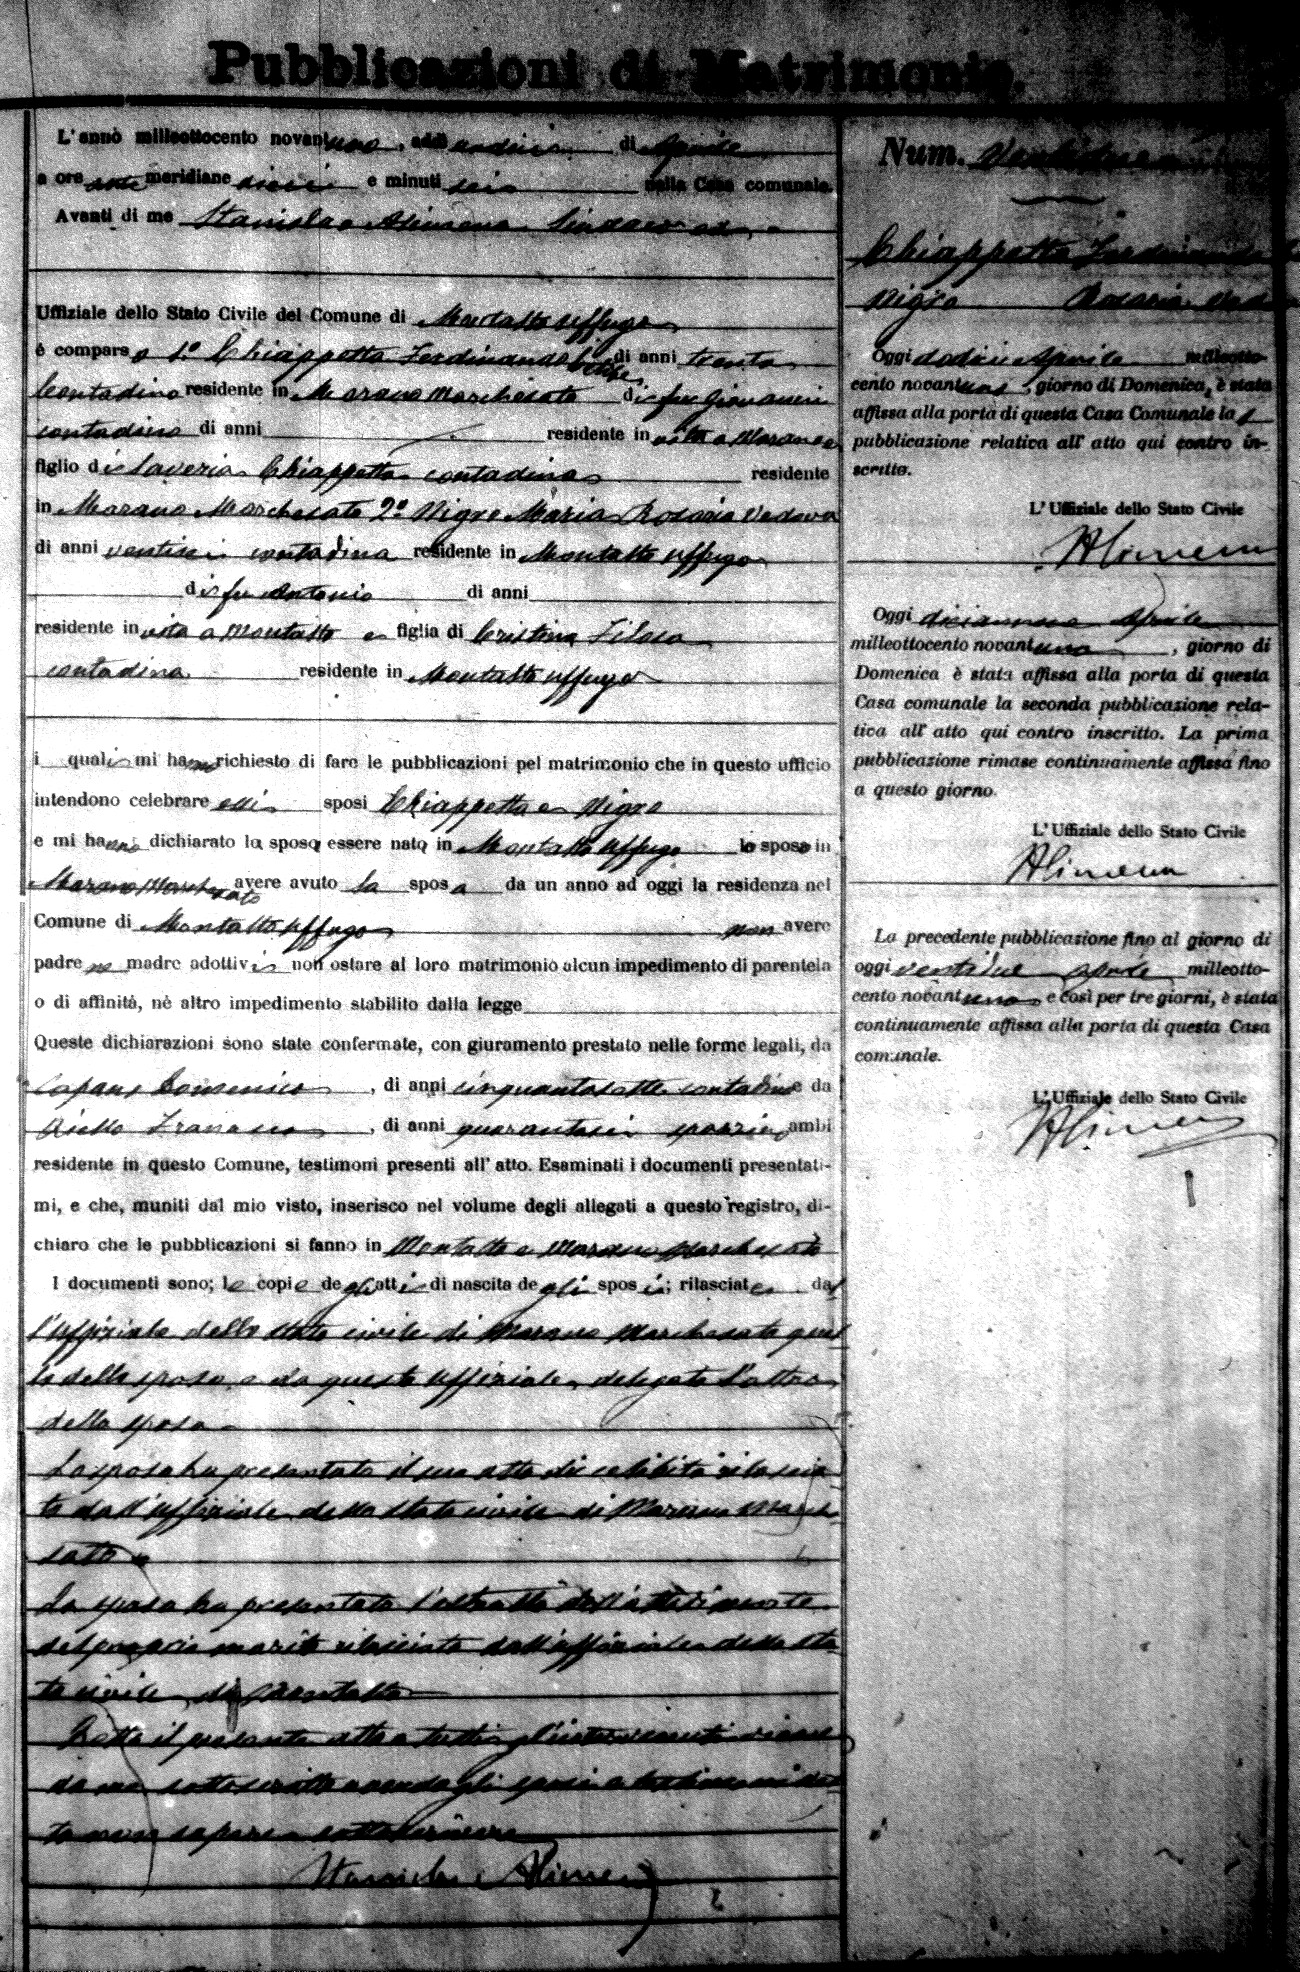 Pubblicazioni di Matrimonio.
L'anno milleottocento novantuno, addì undici di Aprile
a ore ante meridiane dieci e minuti seis nella Casa comunale.
Avanti di me Stanislao Alimena Sindaco ed
Uffiziale dello Stato Civile del Comune di Montalto Uffugo
è comparso 1.º Chiappetta Ferdinando celibe di anni trenta
contadino residente in Marano Marchesato di fu Giovanni
contadino di anni residente in vita a Marano e
figlio di Saveria Chiappetta contadina residente
in Marano Marchesato 2º Nigro Maria Rosaria Vedova
di anni ventisei contadina residente in Montalto Uffugo
di fu Antonio di anni
residente in vita a Montalto e figlia di Cristina Filosa
contadina residente in Montalto Uffugo
i quali mi hanno richiesto di fare le pubblicazioni pel matrimonio che in questo ufficio
intendono celebrare essi sposi Chiappetta e Nigro
e mi hanno dichiarato la sposa essere nata in Montalto Uffugo lo sposo in
Marano Marchesato avere avuto la sposa da un anno ad oggi la residenza nel
Comune di Montalto Uffugo non avere
padre ne madre adottivi non ostare al loro matrimonio alcun impedimento di parentela
o di affinità, nè altro impedimento stabilito dalla legge
Queste dichiarazioni sono state confermate, con giuramento prestato nelle forme legali, da
Capano Domenico, di anni cinquantasette contadino e da
Aiello Francesco, di anni quarantasei ambi
residente in questo Comune, testimoni presenti all'atto. Esaminati i documenti presentati-
mi, e che, muniti dal mio visto, inserisco nel volume degli allegati a questo registro, di-
chiaro che le pubblicazioni si fanno in Montalto e Marano Marchesato
I documenti sono; le copie degli atti di nascita degli sposi; rilasciate dal
l'uffiziale dello stato civile di Marano Marchesato quel
lo dello sposo, e da questo uffiziale delegato l'altro
della sposa.
Lo sposo ha presentato il suo atto di celibità rilascia
to dall'uffiziale dello stato civile di Marano Marche
sato
La sposa ha presentato l'estratto dell'atto di morte
del proprio marito rilasciato dall'uffiziale dello sta
to civile di Montalto
Letto il presente atto a tutti gl'intervenuti viene
da me sottoscritto avendo gli sposi e testimoni det
to non sapere sottoscrivere
Stanislao Alimena
Num. Ventidue
Chiappetta Ferdinando
Nigro Rosaria
Oggi dodici Aprile milleotto-
cento novantuno, giorno di Domenica, è stata
affissa alla porta di questa Casa Comunale la 1
pubblicazione relativa all'atto qui contro in-
scritto.
L'Uffiziale dello Stato Civile
Alimena
Oggi diciannove Aprile
milleottocento novantuno, giorno di
Domenica è stata affissa alla porta di questa
Casa comunale la seconda pubblicazione rela-
tica all'atto qui contro inscritto. La prima
pubblicazione rimase continuamente affissa fino
a questo giorno.
L'Uffiziale dello Stato Civile
Alimena
La precedente pubblicazione fino al giorno di
oggi ventidue aprile milleotto-
cento novantuno e così per tre giorni, è stata
continuamente affissa alla porta di questa Casa
comunale.
L'Uffiziale dello Stato Civile
Alimena